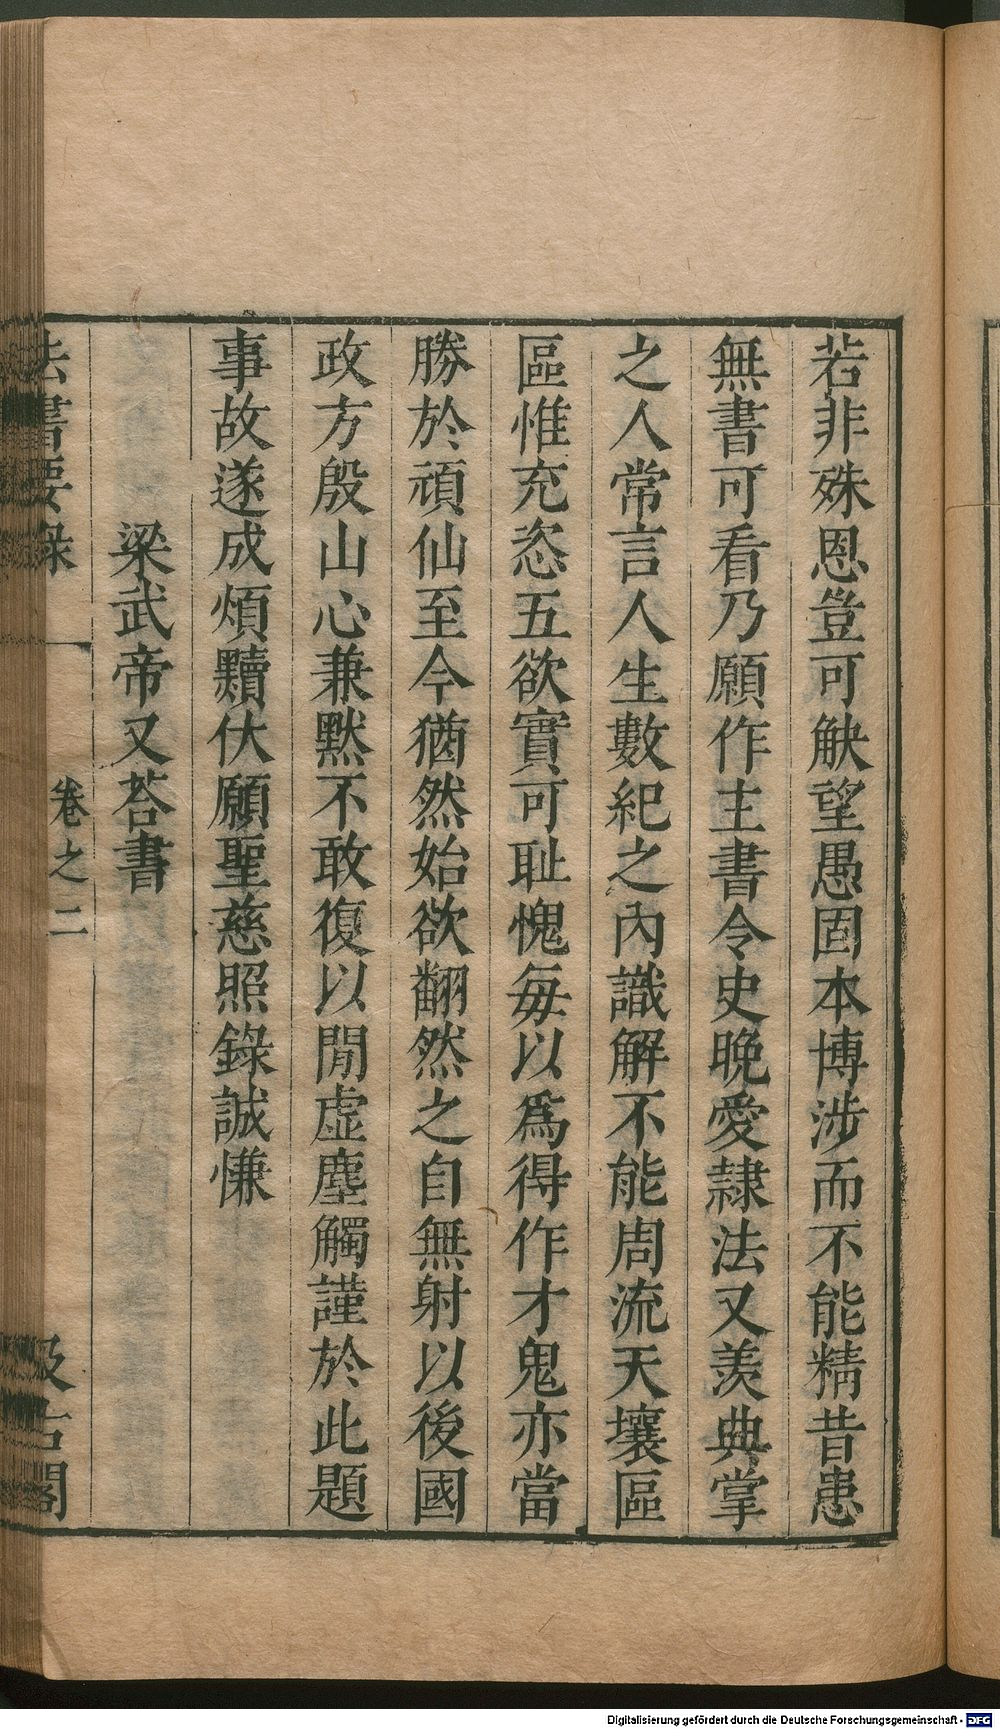 若非殊恩豈可觖望愚固本博涉而不能精昔患
無書可看乃願作主書令史晚愛隷法又羡典掌
之人常言人生數紀之內識解不能周流天壤區
區惟充恣五欲實可耻愧每以爲得作才鬼亦當
勝於頑仙至今猶然始欲翻然之自無射以後國
政方殷山心兼默不敢復以閒虛塵觸謹於此題
事故遂成煩黷伏願聖慈照錄誠慊
梁武帝又荅書
法書要錄
卷之二
汲古閣
Digitalisierung gefördert durch die Deutsche Forschungsgemeinschaft - DFG